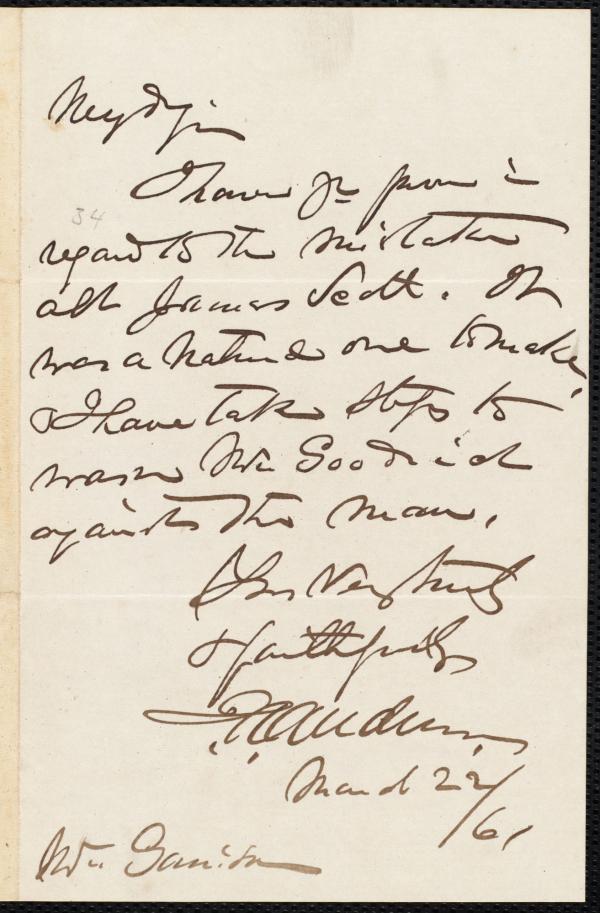 My dr Sir
I have yr favor in
34
regard to the mistake
abt James Scott. It
was a natural one to make,
& I have taken steps to
warn Mr Goodrich
against the man.
Yrs Very truly
& faithfully
March 22/
/61
Mr. Garrison